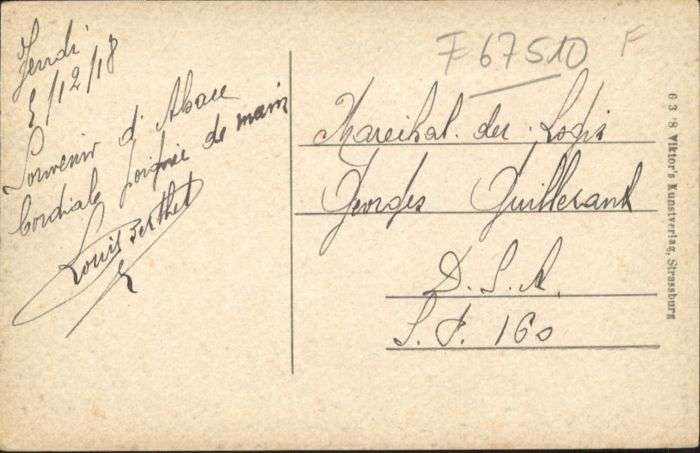 Jeudi
5/12/18
Souvenir d'Alsace
Cordiale poignée de main
Louis Berthet
F 67510 F
Marechal des Logis
Georges Guillerand
D. S. A.
S. P. 160
6 3 '8 Viktor's Kunstverlag, Strassburg